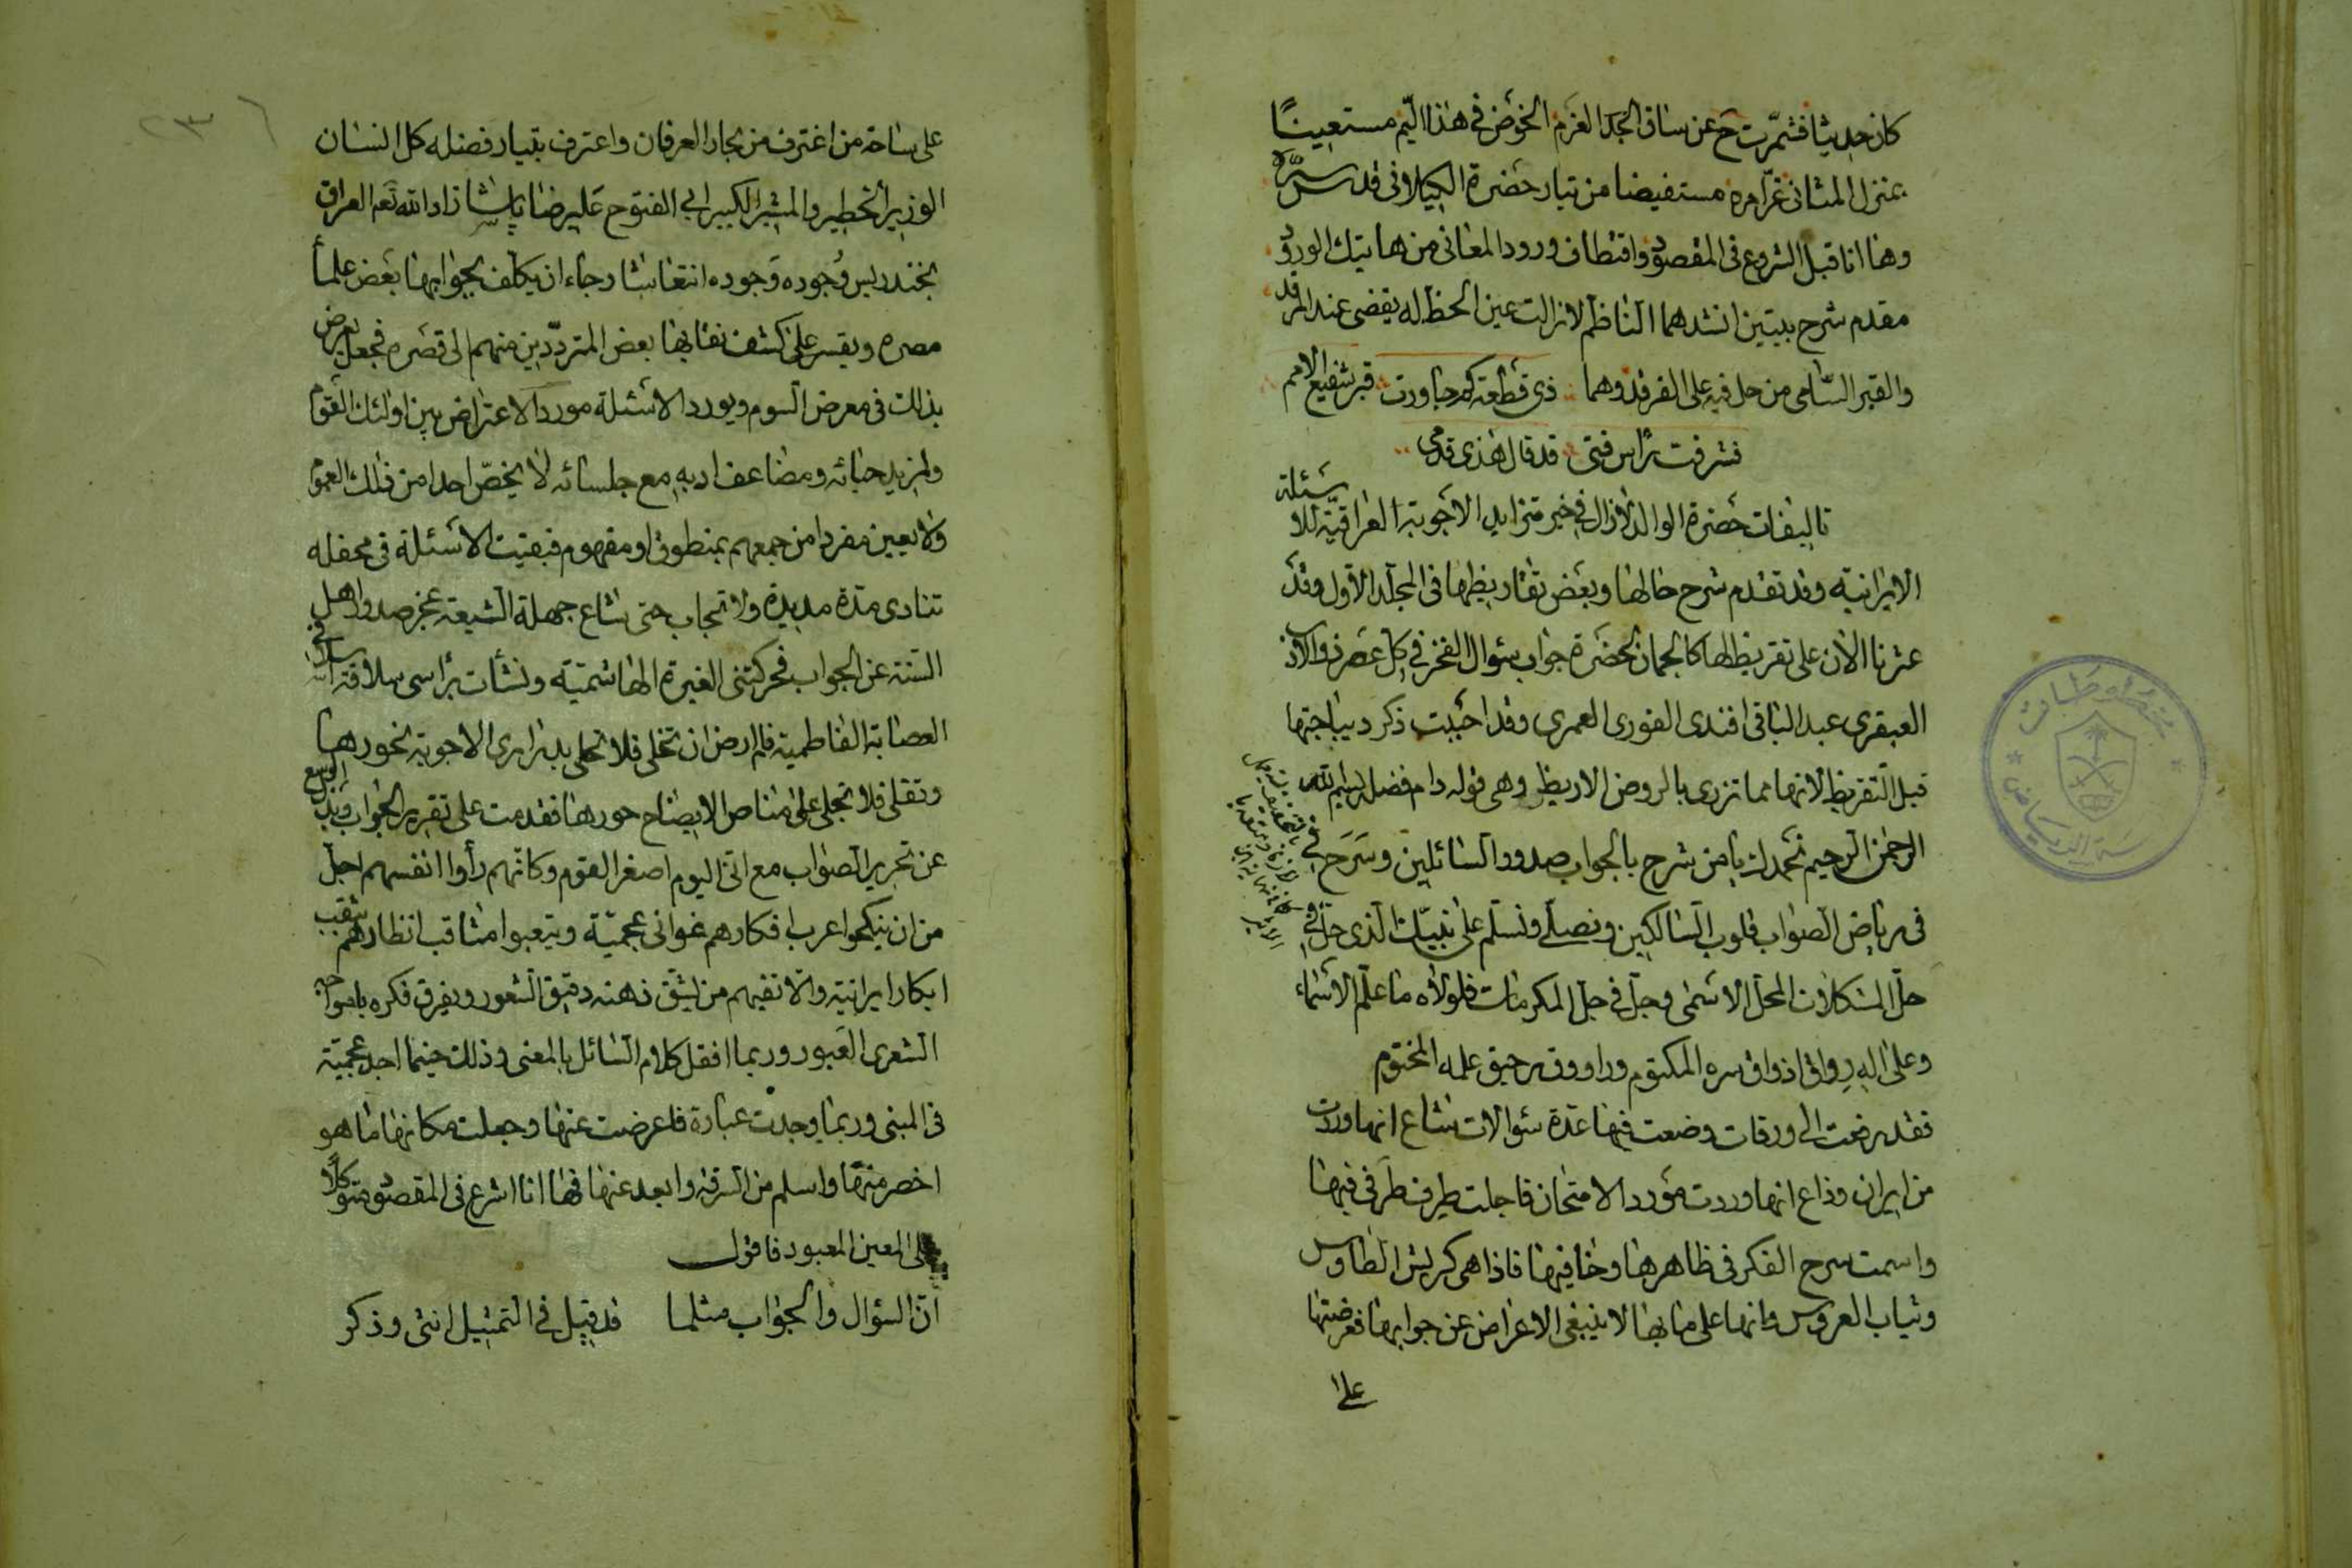 كان حديثا فشمّرت ح عن ساق الجد العزم الخوض في هذا اليم مستعينًا
بمنزل المثاني غرامره مستفيضا من تيار حضرة الكيلاني قدس سره
وها انا قبل الشروع في المقصود واقتطاف ورود المعاني من هاتيك الورود
مقدم شرح بيتين انشدهما الناظم لا زالت عين الحظ له يقضى عند المرقد
والقبر السّامي من حل فيه على الفرقد وهما ذي قطعة كم جاورت قبر شفيع الامم
فشرفت رأس فتى قد قال هذي قدمي
تاليفات حضرة الوالد لازال في خير متزايد الاجوبة العراقيّة للاسئلة
الايرانية وقد تقدم شرح حالها وبعض تقاريظها في المجلد الاول وقد
عثرنا الآن على تقريظ لها كالجمان لحضرة جواب سئوال الفخر في كل عصر واوان
العبقري عبد الباقي افندي الفوري العمري وقد احببت ذكر ديباجتها
قبل التقريظ لانها مما تزري بالروض الاريظ وهي قوله دام فضله بسم الله
الرحمن الرحيم نحمدك يا من شرح بالجواب صدور السائلين وسَرَح
في رياض الصواب قلوب السالكين ونصلّي ونسلّم على نبيّك الذي حلّ في
حلّ المشكلات المحلّ الاسمى وجلّ في جلّ المكرمات فلولاه ما علّم الاسماء
وعلى اله رواق اذواق سره المكتوم وراووق رحيق علمه المختوم
فقد رفعت الي ورقات وضعت فيها عدة سئوالات شاع انها وردت
من ايران وذاع انها وردت مورد الامتحان فاجلت طرف طرفي فيها
واسمت سرح الفكر في ظاهرها وخافيها فاذا هي كريش الطاوس
وثياب العروس وانها على ما بها لا ينبغي الاعراض عن جوابها فعرضتها
على
على ساحة من اغترف من بحار العرفان واعترف بتيار فضله كل انسان
الوزير الخطير والمشير الكبير ابي الفتوح علي رضا پاشا زاد الله نعم العراق
بخندريس وُجوده وَجوده انتعاشا رجاء ان يكلف بجوابها بعض علماء
مصره ويقسر على كشف نقابها بعض المتردّدين منهم الى قصره فجعل يعرض
بذلك في معرض السوم ويورد الاسئلة مورد الاعتراض بين اولئك القوم
ولمزيد حيائه ومضاعف ادبه مع جلسائه لا يخصّ احدا من ذلك العموم
ولا يعين مفردا من جمعهم بمنطوق او مفهوم فبقيت الاسئلة في محفله
تنادي مدة مديدة ولا تجاب حتى شاع جهلة الشيعة عجز صدور اهل
السنة عن الجواب فحركتني الغيرة الهاشميّة ونشأت برأسي سلافة
العصابة الفاطمية فلم ارض ان تخلى فلا تحلى بدراري الاجوبة نحورها
وتقلى فلا تجلى على مناص الايضاح حورها فقدمت على تقرير الجواب وبذل الوسع
عن تحرير الصواب مع اني اليوم اصغر القوم وكانهم رأوا انفسهم اجل
من ان ينكحوا عرب افكارهم غواني عجميّة ويتعبوا مثاقب انظارهم بثقب
ابكار ايرانية والا ففيهم من يشقّ ذهنه دقيق الشعور ويفرق فكره بامواجه
الشعرى العَبور وربما انقل كلام السائل بالمعنى وذلك حينما اجد عجميّة
في المبنى وربما وجدت عبارة فاعرضت عنها وجعلت مكانها ما هو
اخصر منها واسلم من السرقة وابعد عنها فها انا اشرع في المقصود متوكلًا
على المعين المعبود فاقول
انّ السؤال والجواب مثلما قد قيل في التمثيل انثى وذكر